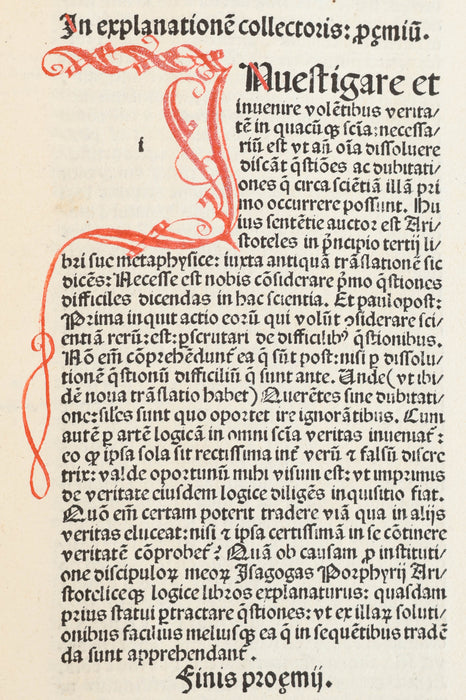 In explanationē collectoris: ꝓęmiū.
INuestigare et
inuenire volētibus verita⸗
tē in quacūqꝫ sciā: necessa⸗
riū est vt añ oīa dissoluere
discāt q̄stiōes ac dubitati⸗
ones q̄ circa sciētiā illā pri
mo occurrere possunt. Hu
i
ius sentētie auctor est Ari⸗
stoteles in pͥncipio tertij li⸗
bri sue metaphysice: iuxta antiquā trāslationē sic
dicēs: Necesse est nobis cōsiderare pͥmo q̄stiones
difficiles dicendas in hac scientia. Et paulopost:
Prima inquit actio eorū qui volūt ꝯsiderare sci⸗
entiā rerū: est: ꝑscrutari de difficilibꝰ q̄stionibus.
Nō em̄ cōprehendunt᷑ ea q̄ sūt post: nisi ꝑ dissolu⸗
tionē q̄stionū difficiliū q̄ sunt ante. Unde (vt ibi⸗
dē noua trāslatio habet) Querētes sine dubitati⸗
one: sil̄es sunt quo oportet ire ignorātibus. Cum
autē ꝑ artē logicā in omni sciā veritas inueniat᷑:
eo ꝙ ipsa sola sit rectissima int̄ verū ⁊ falsū discre
trix: valde oportunū mihi visum est: vt imprimis
de veritate eiusdem logice diligēs inquisitio fiat.
Quō em̄ certam poterit tradere viā qua in alijs
veritas eluceat: nisi ⁊ ipsa certissimā in se cōtinere
veritatē cōprobet᷑? Quā ob causam ꝓ instituti⸗
one discipuloꝝ meoꝝ Isagogas Porphyrij Ari⸗
stoteliceqꝫ logice libros explanaturus: quasdam
prius statui ꝑtractare q̄stiones: vt ex illaꝝ soluti⸗
onibus facilius meliusqꝫ ea q̄ in sequētibus tradē
da sunt apprehendant᷑.
Finis proęmij.